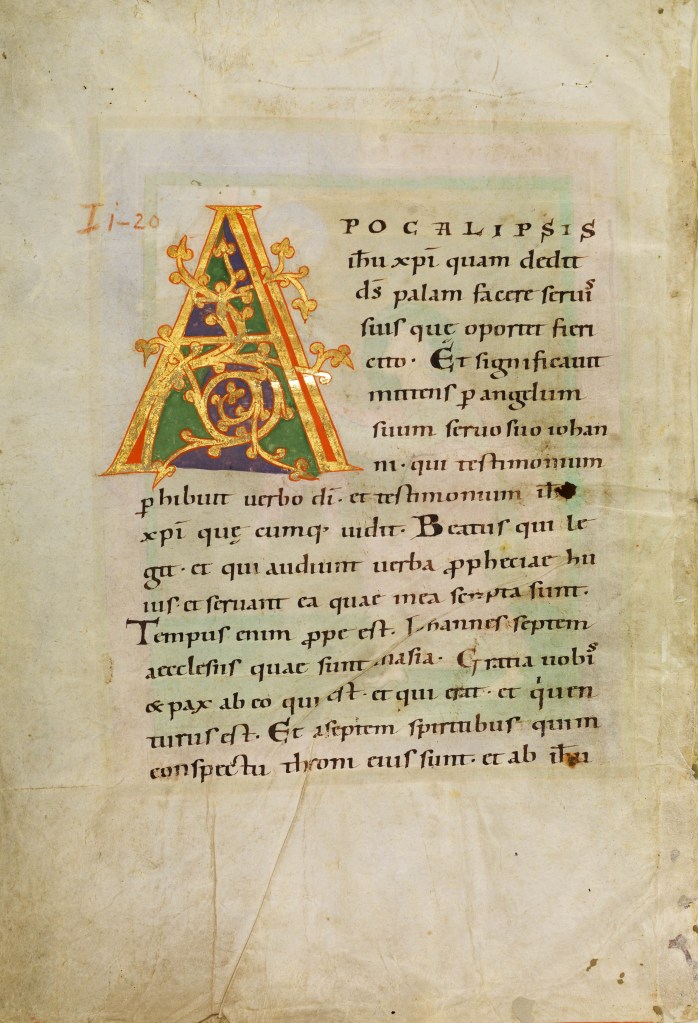 I i-20
APOCALIPSIS
ih̅u xp̅i quam dedit
d̅s palam facere serui᷒
suis quę oportet fieri
cito· Et significauit
mittens ꝑ angelum
suum seruo suo iohan
ni· qui testimonium
ꝑhibuit uerbo d̅i· et testimonium ih̅u
xp̅i quę cumq; uidit· Beatus qui le
git· et qui audiunt uerba ꝓpheciae hu
ius· et seruant ea quae in ea scripta sunt·
Tempus enim ꝓpe est· Iohannes septem
aecclesiis quae sunt in asia· Gratia uobi᷒
& pax ab eo qui est· et qui erat· et qͥ uen
turus est· Et a septem spiritibus qui in
conspectu throni eius sunt· et ab ih̅u